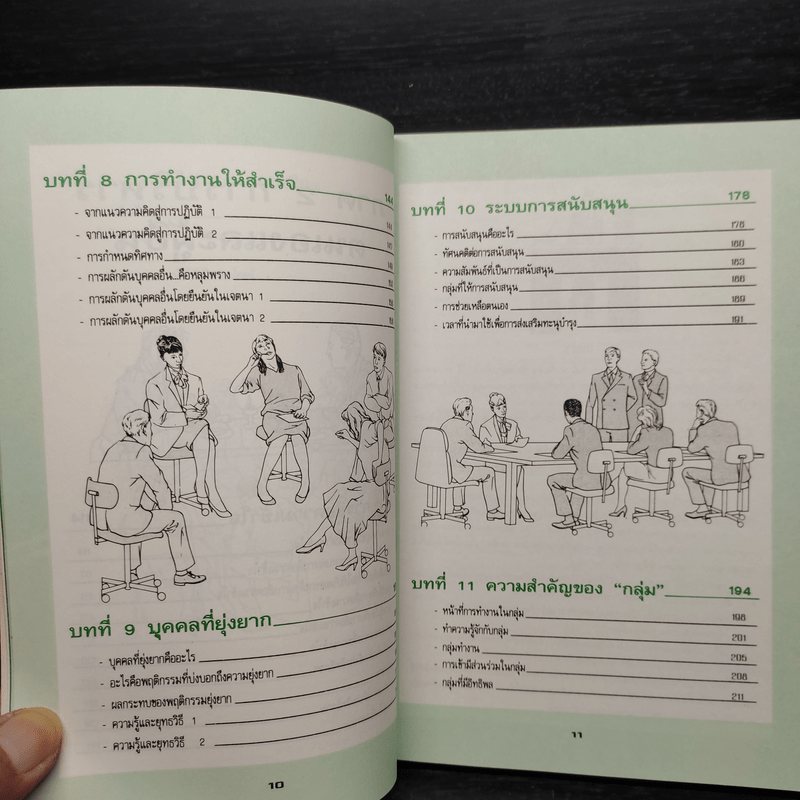 บทที่ 8 การทำงานให้สำเร็จ 144
- จากแนวความคิดสู่การปฏิบัติ 1
- จากแนวความคิดสู่การปฏิบัติ 2
- การกำหนดทิศทาง
- การผลักดันบุคคลอื่น...คือหลุมพราง
- การผลักดันบุคคลอื่นโดยยืนยันในเจตนา 1
- การผลักดันบุคคลอื่นโดยยืนยันในเจตนา 2
บทที่ 9 บุคคลที่ยุ่งยาก
- บุคคลที่ยุ่งยากคืออะไร
- อะไรคือพฤติกรรมที่บ่งบอกถึงความยุ่งยาก
- ผลกระทบของพฤติกรรมยุ่งยาก
- ความรู้และยุทธวิธี 1
- ความรู้และยุทธวิธี 2
10
บทที่ 10 ระบบการสนับสนุน 178
- การสนับสนุนคืออะไร 178
- ทัศนคติต่อการสนับสนุน 180
- ความสัมพันธ์ที่เป็นการสนับสนุน 183
- กลุ่มที่ให้การสนับสนุน 186
- การช่วยเหลือตนเอง 189
- เวลาที่นำมาใช้เพื่อการส่งเสริมทะนุบำรุง 191
บทที่ 11 ความสำคัญของ "กลุ่ม" 194
- หน้าที่การทำงานในกลุ่ม 196
- ทำความรู้จักกับกลุ่ม 201
- กลุ่มทำงาน 205
- การเข้ามีส่วนร่วมในกลุ่ม 208
- กลุ่มที่มีอิทธิพล 211
11